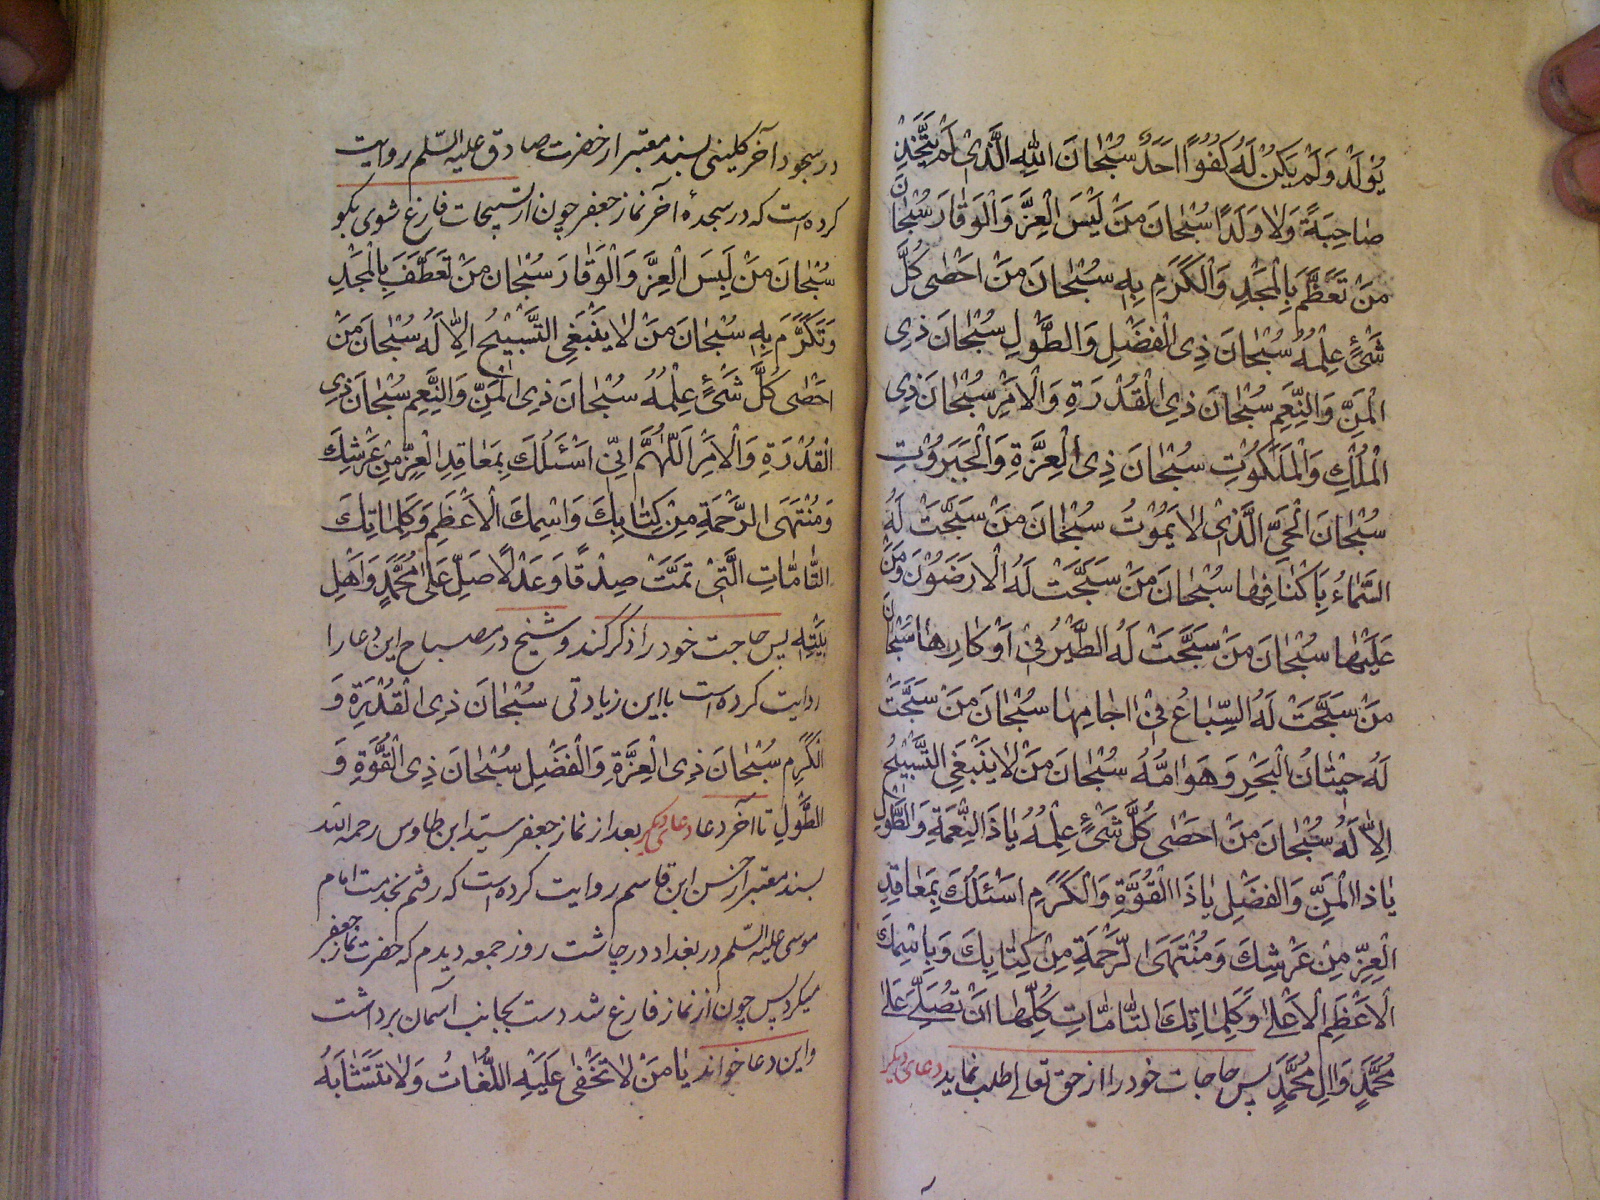 يُولَدْ وَلَمْ يَكُنْ لَهُ كُفُوًا اَحَدٌ سُبْحٰانَ اللهِ الَّذى لَمْ يَتَّخِذْ
صٰاحِبَةً وَلٰا وَلَدًا سُبْحٰانَ مَنْ لَبِسَ الْعِزَّ وَالْوَقٰارَ سُبْحٰانَ
مَنْ تَعَظَّمَ بِالْمَجْدِ وَالْكَرَمِ بِهِ سُبْحٰانَ مَنْ اَحْصٰى كُلَّ
شَىْءٍ عِلْمُهُ سُبْحٰانَ ذِى الْفَضْلِ وَالطَّوْلِ سُبْحٰانَ ذِى
الْمَنِّ وَالنِّعَمِ سُبْحٰانَ ذِى الْقُدْرَةِ وَالْاَمْرِ سُبْحٰانَ ذِى
الْمُلْكِ وَالْمَلَكُوتِ سُبْحٰانَ ذِى الْعِزَّةِ وَالْجَبَرُوتِ
سُبْحٰانَ الْحَىِّ الَّذى لٰا يَمُوتُ سُبْحٰانَ مَنْ سَبَّحَتْ لَهُ
السَّمٰاءُ بِاَكْنٰافِهٰا سُبْحٰانَ مَنْ سَبَّحَتْ لَهُ الْاَرَضُونَ وَمَنْ
عَلَيْهٰا سُبْحٰانَ مَنْ سَبَّحَتْ لَهُ الطَّيْرُ فى اَوْكٰارِهٰا سُبْحٰانَ
مَنْ سَبَّحَتْ لَهُ السِّبٰاعُ فى اٰجٰامِهٰا سُبْحٰانَ مَنْ سَبَّحَتْ
لَهُ حيتٰانُ الْبَحْرِ وَهَوٰامُّهُ سُبْحٰانَ مَنْ لٰا يَنْبَغِى التَّسْبيحُ
اِلّٰا لَهُ سُبْحٰانَ مَنْ اَحْصٰى كُلَّ شَىْءٍ عِلْمُهُ يٰا ذَا النِّعْمَةِ وَالطَّوْلِ
يٰا ذَا الْمَنِّ وَالْفَضْلِ يٰا ذَا الْقُوَّةِ وَالْكَرَمِ اَسْئَلُكَ بِمَعٰاقِدِ
الْعِزِّ مِنْ عَرْشِكَ وَمُنْتَهَى الرَّحْمَةِ مِنْ كِتٰابِكَ وَبِاسْمِكَ
الْاَعْظَمِ الْاَعْلٰى وَكَلِمٰاتِكَ التّٰامّٰاتِ كُلِّهٰا اَنْ تُصَلِّىَ عَلٰى
مُحَمَّدٍ وَاٰلِ مُحَمَّدٍ پس حاجات خود را از حق تعالى طلب نمايد دعاى ديكر
در سجود آخر كلينى بسند معتبر از حضرت صادق عليه السّلم روايت
كرده است كه در سجدهٔ آخر نماز جعفر چون از تسبيحات فارغ شوى بكو
سُبْحٰانَ مَنْ لَبِسَ الْعِزَّ وَالْوَقٰارَ سُبْحٰانَ مَنْ تَعَطَّفَ بِالْمَجْدِ
وَتَكَرَّمَ بِهِ سُبْحٰانَ مَنْ لٰا يَنْبَغِى التَّسْبيحُ اِلّٰا لَهُ سُبْحٰانَ مَنْ
اَحْصٰى كُلَّ شَىْءٍ عِلْمُهُ سُبْحٰانَ ذِى الْمَنِّ وَالنِّعَمِ سُبْحٰانَ ذِى
الْقُدْرَةِ وَالْاَمْرِ اَللّٰهُمَّ اِنّى اَسْئَلُكَ بِمَعٰاقِدِ الْعِزِّ مِنْ عَرْشِكَ
وَمُنْتَهَى الرَّحْمَةِ مِنْ كِتٰابِكَ وَاسْمِكَ الْاَعْظَمِ وَكَلِمٰاتِكَ
التّٰامّٰاتِ الَّتى تَمَّتْ صِدْقًا وَعَدْلًا صَلِّ عَلٰى مُحَمَّدٍ وَاَهْلِ
بَيْتِهِ پس حاجت خود را ذكر كند و شيخ در مصباح اين دعا را
روايت كرده است با اين زيادتى سُبْحٰانَ ذِى الْقُدْرَةِ وَ
الْكَرَمِ سُبْحٰانَ ذِى الْعِزَّةِ وَالْفَضْلِ سُبْحٰانَ ذِى الْقُوَّةِ وَ
الطَّوْلِ تا آخر دعا دعاى ديكر بعد از نماز جعفر سيّد ابن طاوس رحمه الله
بسند معتبر از حسن ابن قاسم روايت كرده است كه رفتم بخدمت امام
موسى عليه السّلم در بغداد در چاشت روز جمعه ديدم كه حضرت نماز جعفر
ميكرد پس چون از نماز فارغ شد دست بجانب آسمان برداشت
و اين دعا خواند يٰا مَنْ لٰا تَخْفٰى عَلَيْهِ اللُّغٰاتُ وَلٰا تَتَشٰابَهُ